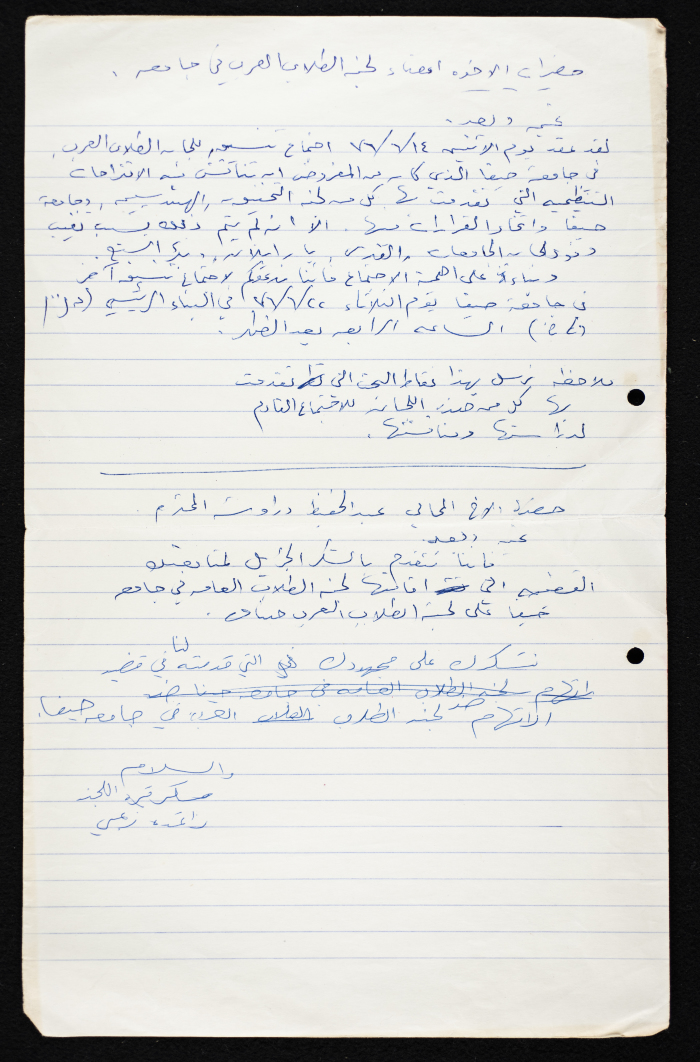 حضرات الاخوه اعضاء لجنة الطلاب العرب في جامعه .
تحيه وبعد .
لقد عقد يوم الاثنين ٧٦/٦/١٤ اجتماع للجان الطلاب العرب
في جامعة حيفا الذي كان من المفروض ان تناقش فيه الاقتراحات
التنظيميه التي تقدمت بها كل من لجنة التخنيون وجامعة
حيفا واتخاذ القرارات فيها . الا انه لم يتم ذلك بسبب تغيب
وفود لجان الجامعات ، القدس ، بار ايلان ، بئر السبع .
وبناءً على اهمية الاجتماع فاننا ندعوكم لاجتماع آخر
في جامعة حيفا يوم الثلاثاء ٧٦/٦/٢٢ في البناء الرئيسي
الساعه الرابعه بعد الظهر .
ملاحظه نرسل بهذا نقاط البحث التي تقدمت
بها كل من اللجان للاجتماع القادم
لدراستها ومناقشتها .
حضرة الاخ المحامي عبد الحفيظ دراوشه المحترم
تحيه وبعد .
فاننا نتقدم بالشكر الجزيل
القضيه التي اقامتها لجنة الطلاب العامه في جامعة
حيفا على لجنة الطلاب العرب هناك .
نشكرك على مجهودك التي قدمته لنا في قضيه
اتهام لجنة الطلاب العامه في جامعه حيفا ضد
الاتهام ضد لجنة الطلاب الطلاب العرب في جامعه حيفا .
والسلام
سكرتيرة اللجنه